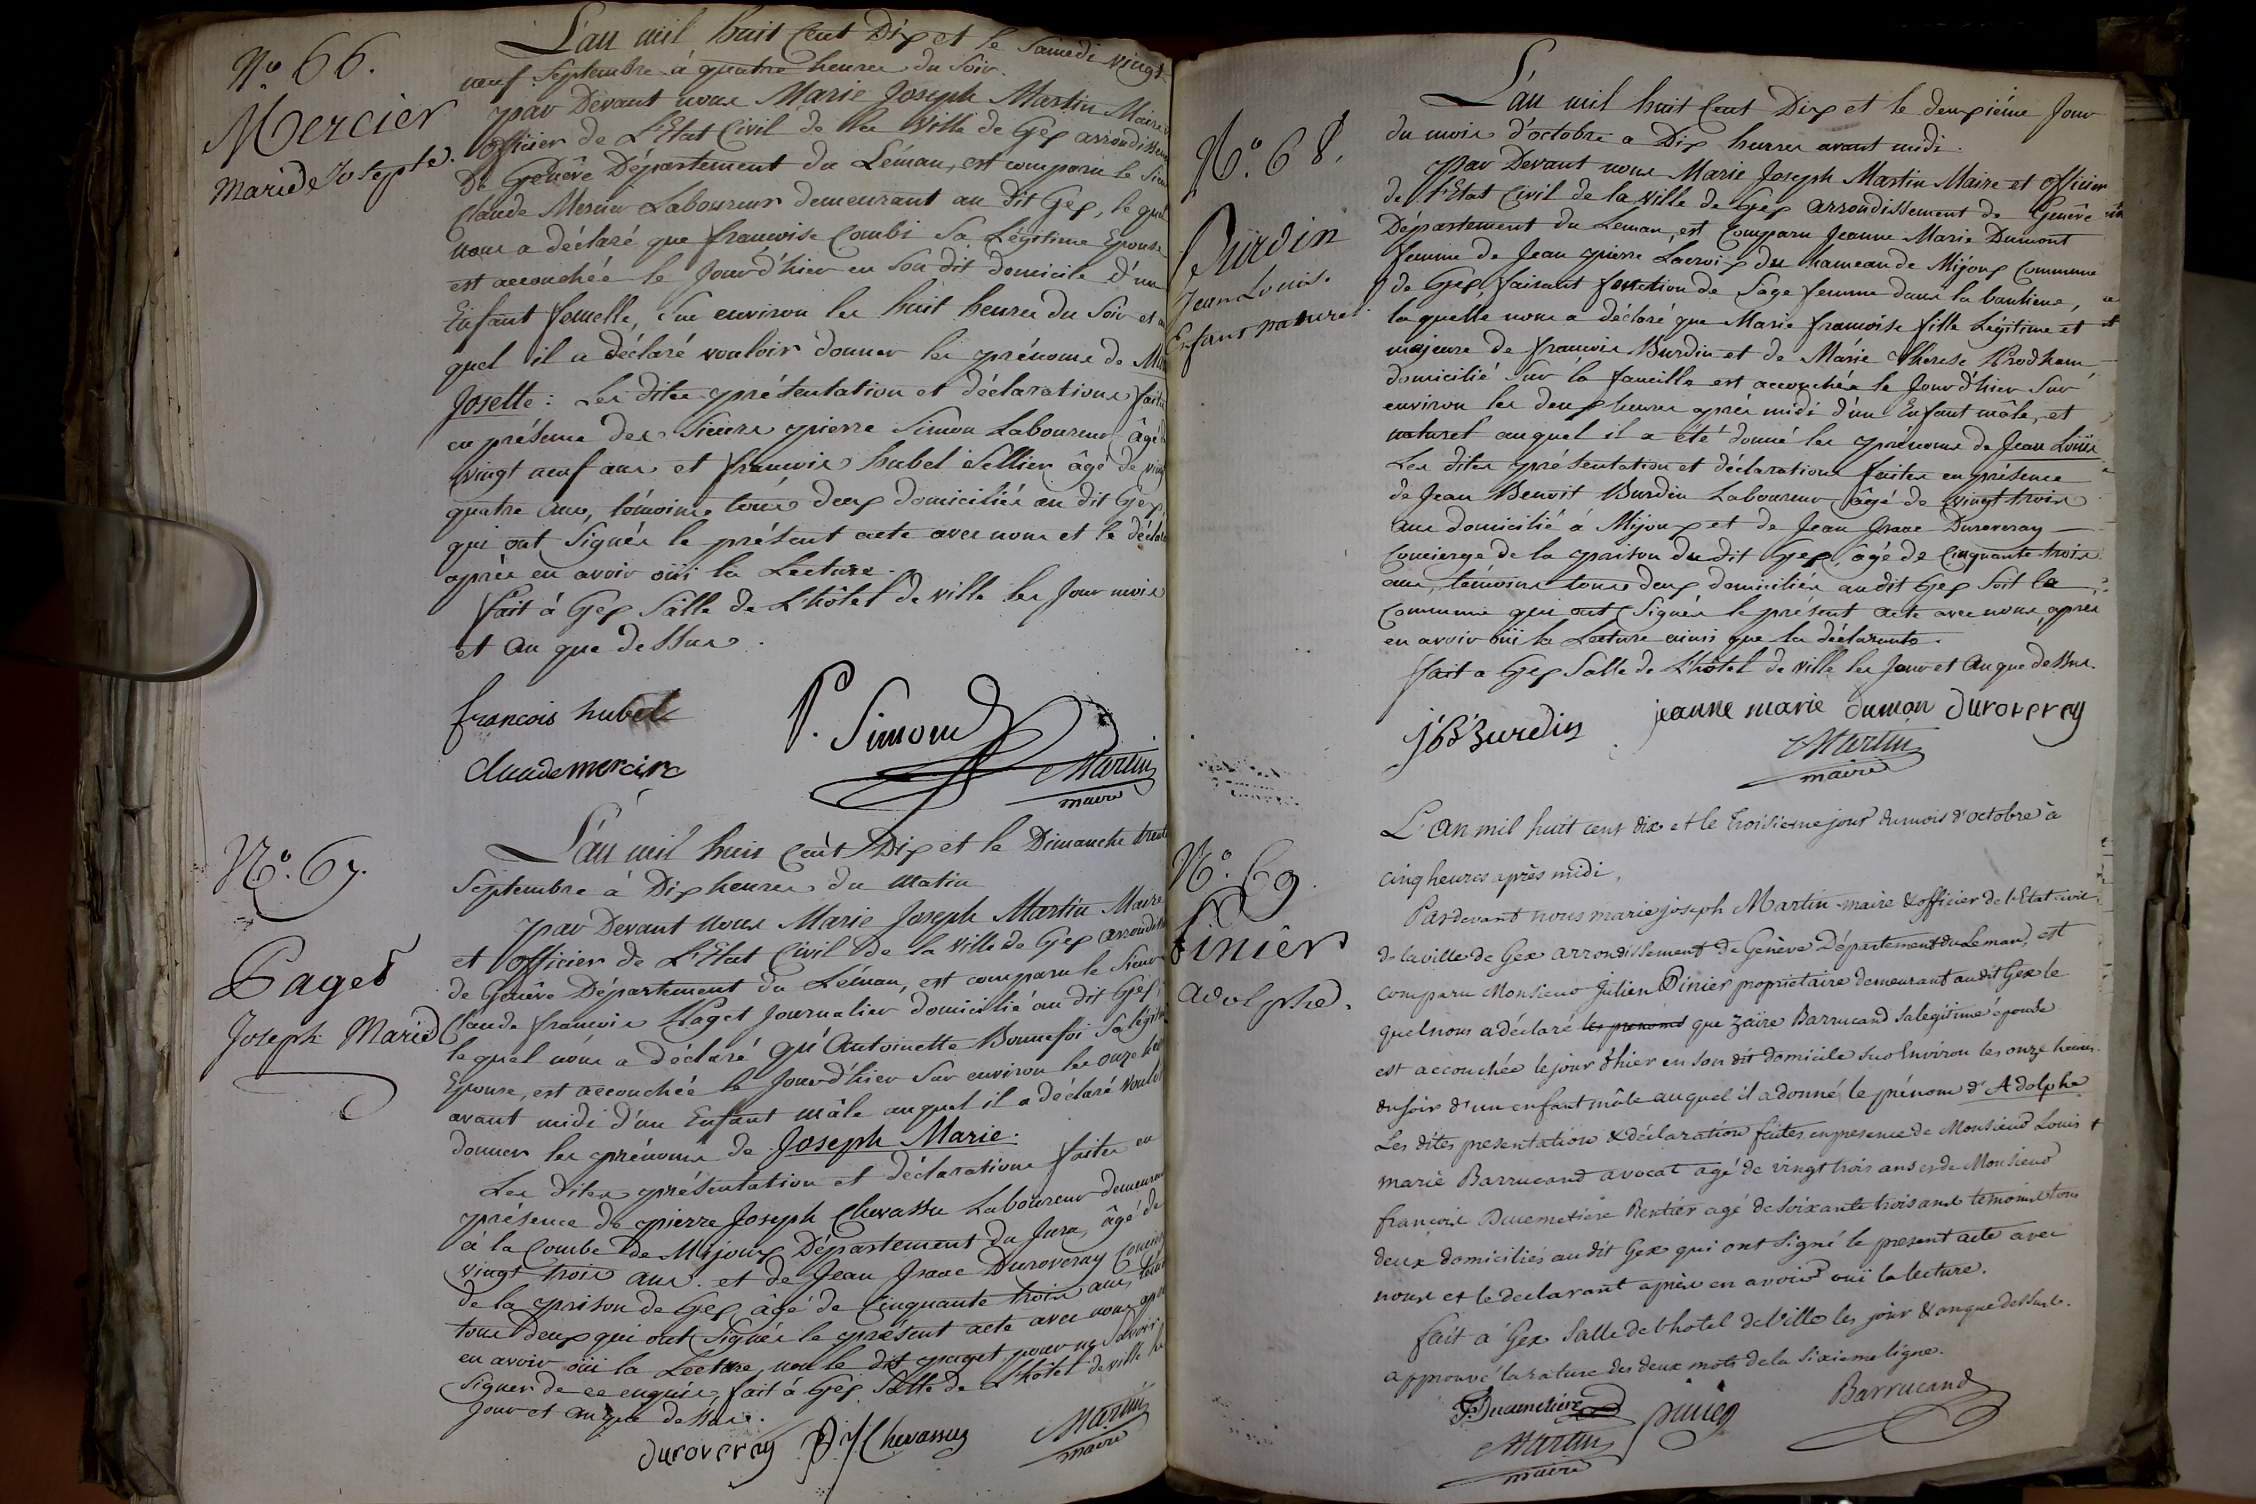 N.º 66.
Mercier
Marie Josephte.
L'an mil huit Cent Dix et le Samedi vingt
neuf Septembre à quatre heures du Soir.
par Devant nous Marie Joseph Martin Maire
officier de L'Etat Civil de la Ville de Gex arrondissem
De Genève Département du Léman, est comparu le Sieur
Claude Mercier Laboureur demeurant au dit Gex, le quel
nous a déclaré que francoise Combi Sa Légitime Epouse
est accouchée le Jour d'hier en Son dit domicile d'un
Enfant femelle, Sur environ les huit heures du Soir et au
quel il a déclaré vouloir donner les prénoms de Marie
Josette : Les dites présentation et déclarations faites
en présence des Sieurs pierre Simon Laboureur âgé de
vingt neuf ans et francois hubel Sellier âgé de vingt
quatre ans, témoins tous deux domiciliés au dit Gex,
qui ont Signés le présent acte avec nous et le déclar
après en avoir oüi la Lecture.
fait à Gex Salle de L'hôtel de ville les Jour mois
et an que dessus.
francois hubel
P. Simond
claude mercire
Martin
maire
N.º 67.
Paget
Joseph Marie
L'an mil huit Cent Dix et le Dimanche trente
Septembre à Dix heures du matin
par Devant nous Marie Joseph Martin Maire
et officier de L'Etat Civil de la ville de Gex arrondiss
de Genève Département du Léman, est comparu le Sieur
Claude francois Paget Journalier domicilié au dit Gex,
le quel nous a déclaré qu'Antoinette Bonnefoi Sa légitime
Epouse, est accouchée le Jour d'hier Sur environ les onze heures
avant midi d'un Enfant mâle auquel il a déclaré vouloir
donner les prénoms de Joseph Marie.
Les dites présentation et déclarations faites en
présence de pierre Joseph Chevassu Laboureur demeurant
à la Combe de Mijoux Département du Jura, âgé de
vingt trois ans. et de Jean Isaac Duroveray Concierge
de la prison de Gex, âgé de Cinquante trois ans, témoins
tous deux qui ont Signés le présent acte avec nous après
en avoir oüi la Lecture, non le dit paget pour ne Savoir
Signer de ce enquis, fait à Gex Salle de L'hôtel de ville les
Jour et an que dessus.
duroveray
P J Chevassus
Martin
maire
N.º 68.
Burdin
Jean Louis.
Enfant naturel.
L'an mil huit Cent Dix et le deuxiéme Jour
du mois d'octobre a Dix heures avant midi.
par Devant nous Marie Joseph Martin Maire et officier
de l'Etat Civil de la ville de Gex arrondissement de Genève
Département du Leman, est Comparu Jeanne Marie Dumont
femme de Jean pierre Lacroix du hameau de Mijoux Commune
de Gex faisant fonction de Sage femme dans la banlieue,
la quelle nous a déclaré que Marie francoise fille Légitime et
majeure de francois Burdin et de Marie Therese Prodhom
domicilié Sur la faucille est accouchée le Jour d'hier Sur
environ les deux heures après midi d'un Enfant mâle, et
naturel auquel il a été donné les prénoms de Jean Loüis
Les dites présentation et déclarations faites en présence
de Jean Benoit Burdin Laboureur âgé de vingt trois
ans domicilié à Mijoux et de Jean Isaac Duroveray
Concierge de la prison du dit Gex, âgé de Cinquante trois
ans, témoins tous deux domiciliés audit Gex Soit la
Commune qui ont Signés le présent acte avec nous, après
en avoir oüi la Lecture ainsi que la déclarante.
fait a Gex Salle de L'hôtel de ville les Jour et an que dessus.
j'B'Burdin
jeanne marie dumon
duroveray
Martin
maire
N.º 69.
Pinier
Adolphe.
L'an mil huit cent dix et le troisieme jour du mois d'octobre à
cinq heures après midi,
Pardevant nous marie joseph Martin maire & officier de l'Etat civil
de la ville de Gex arrondissement de Genève Département du Leman, est
comparu Monsieur Julien Pinier propriétaire demeurant au dit Gex le
quel nous a déclaré les prenoms que Zaïre Barrucand sa legitime épouse
est accouchée le jour d'hier en son dit domicile sur Environ les onze heures
du soir d'un enfant mâle auquel il a donné le prénom d'Adolphe
Les dites presentation & déclaration faites en presence de Monsieur Louis
marie Barrucand avocat agé de vingt trois ans et de Monsieur
francois Ducimetiere Rentier agé de soixante trois ans temoins tous
deux domiciliés au dit Gex qui ont signé le present acte avec
nous et le declarant après en avoir oui la lecture.
fait à Gex Salle de l'hotel de Ville les jour & an que dessus.
approuvé la rature des deux mots de la sixieme ligne.
F. Ducimetiere
pinier
Barrucand
Martin
maire